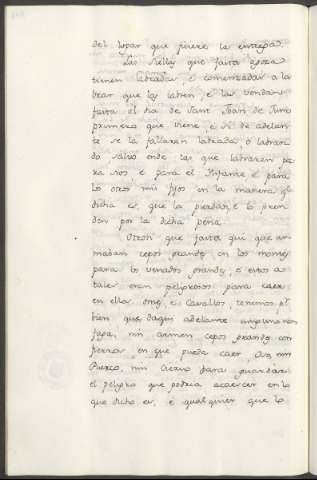 del lugar que fuere la entrega.
Las Sellas que fasta agora
tienen labradas é comenzadas a la
brar que las labren é las vendan
fasta el dia de Sant Joan de Junio
primero que viene, é si de adelan
te se la fallaren labrada, o labran
do, salvo ende las que labraren pa
ra nos é para el Infante é para
los otros mis fijos en la manera que
dicha es, que la pierdan, é lo pren
den por la dicha pena.
Otrosi que fasta qui que ar
maban cepos grandes en los montes
para los venados grandes, é estos a
tales eran peligrosos para caer
en ellos omes, é Cavallos, tenemos por
bien que daqui adelante ninguno non
faga, nin armen cepos grandes con
fierros en que pueda caer Oso, nin
Puerco, nin Ciervo para guardar
el peligro que podria acaescer en lo
que dicho es, é qualquier que lo